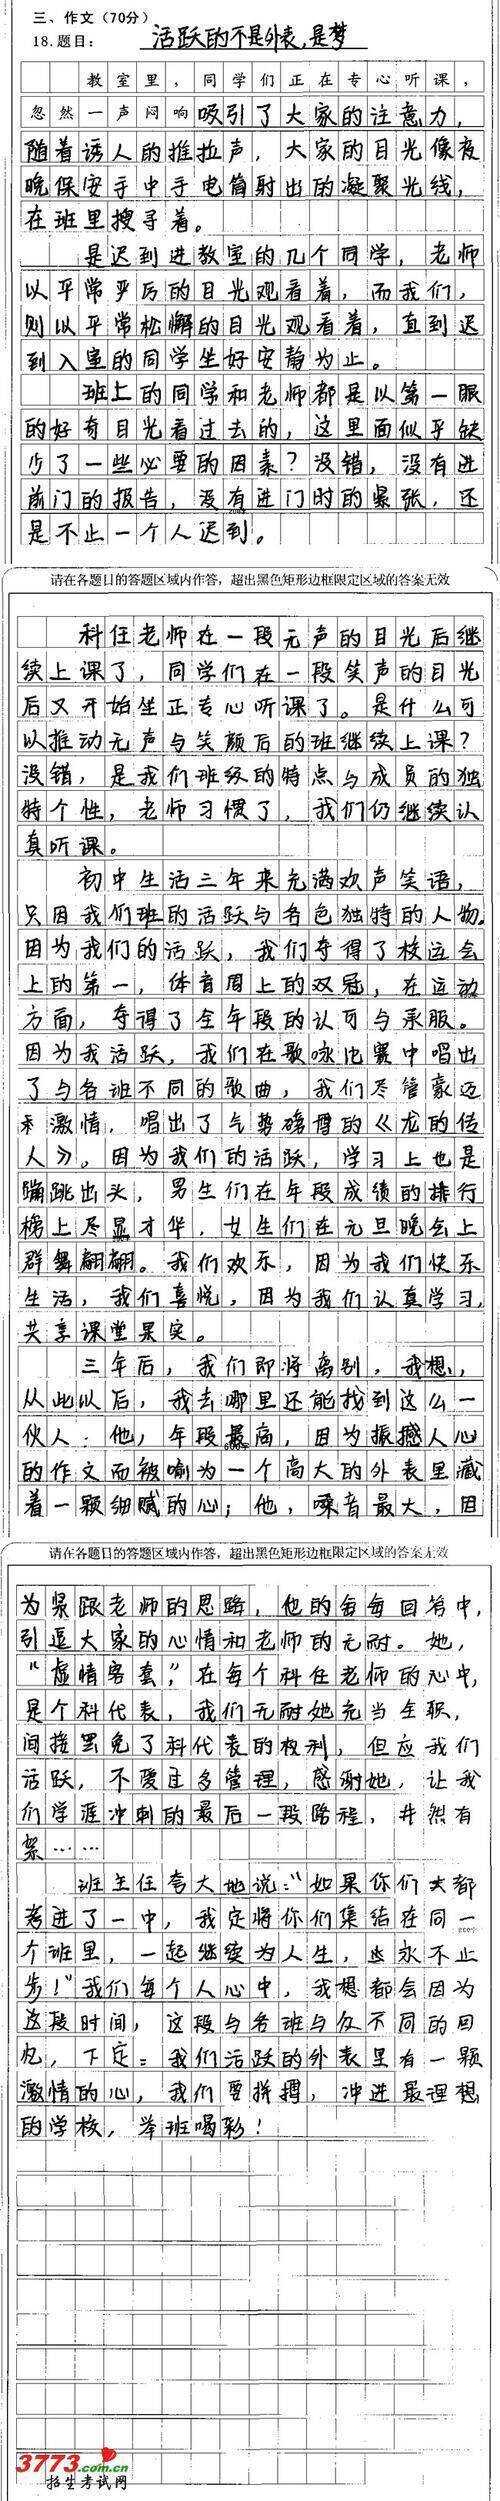 三、作文（70分）
18.题目：活跃的不是外表，是梦
教室里，同学们正在专心听课，
忽然一声闷响吸引了大家的注意力，
随着诱人的推拉声，大家的目光像夜
晚保安手中手电筒射出的凝聚光线，
在班里搜寻着。
是迟到进教室的几个同学，老师
以平常严厉的目光观看着，而我们，
则以平常松懈的目光观看着，直到迟
到入室的同学坐好安静为止。
班上的同学和老师都是以第一眼
的好奇目光看过去的，这里面似乎缺
少了一些必要的因素？没错，没有进
前门的报告，没有进门时的紧张，还
是不止一个人迟到。
请在各题目的答题区域内作答，超出黑色矩形边框限定区域的答案无效
科任老师在一段无声的目光后继
续上课了，同学们在一段笑声的目光
后又开始坐正专心听课了。是什么可
以推动无声与笑颜后的班继续上课？
没错，是我们班级的特点与成员的独
特个性，老师习惯了，我们仍继续认
真听课。
初中生活三年来充满欢声笑语，
只因我们班的活跃与各色独特的人物。
因为我们的活跃，我们夺得了校运会
上的第一，体育周上的双冠，在运动
方面，夺得了全年段的认可与承服。
因为我活跃，我们在歌咏比赛中唱出
了与各班不同的歌曲，我们尽管豪迈
和激情，唱出了气势磅礴的《龙的传
人》。因为我们的活跃，学习上也是
蹦跳出头，男生们在年段成绩的排行
榜上尽显才华，女生们在元旦晚会上
群舞翩翩。我们欢乐，因为我们快乐
生活，我们喜悦，因为我们认真学习，
共享课堂果实。
三年后，我们即将离别，我想，
从此以后，我去哪里还能找到这么一
伙人：他，年段最高，因为振撼人心
的作文而被喻为一个高大的外表里藏
着一颗细腻的心；他，嗓音最大，因
请在各题目的答题区域内作答，超出黑色矩形边框限定区域的答案无效
为紧跟老师的思路，他的每每回答中，
引逗大家的心情和老师的无耐。她，
“虚情客套”，在每个科任老师的心中，
是个科代表，我们无耐她充当全职，
间接罢免了科代表的权利，但应我们
活跃，不爱过多管理，感谢她，让我
们学涯冲刺的最后一段路程，井然有
絮……
班主任夸大地说：“如果你们大都
考进了一中，我定将你们集结在同一
个班里，一起继续为人生，永不止
步！”我们每个人心中，我想都会因为
这段时间，这段与各班与众不同的回
忆，下定：我们活跃的外表里有一颗
激情的心，我们要拼搏，冲进最理想
的学校，举班喝彩！
3773.com.cn
招生考试网